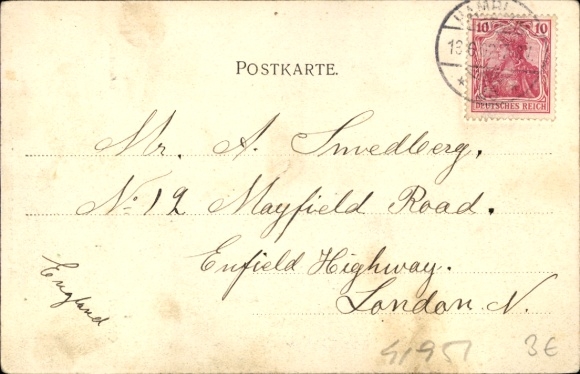 POSTKARTE.
10 10
DEUTSCHES REICH
Mr. A. Smedberg.
No 12 Mayfield Road.
Enfield Highway.
London N.
England
41951
3€